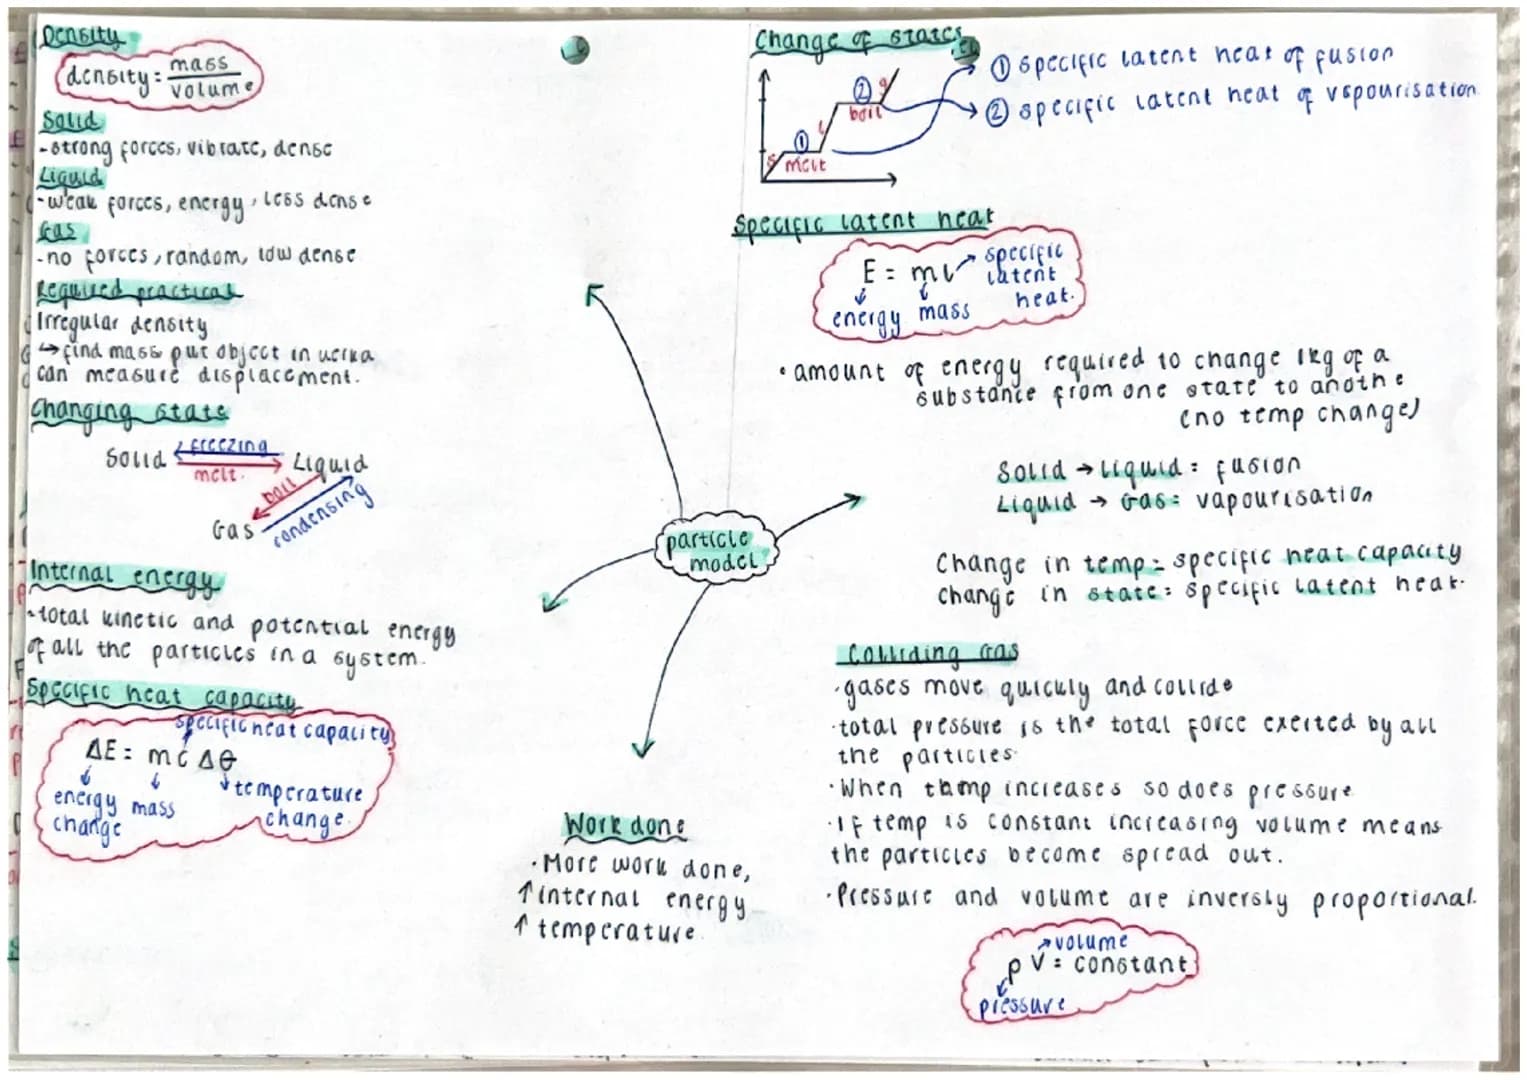 Density
density = mass
volume
Solid
-strong forces, vibrate, dense
Liquid
-weak forces, energy, less dense
Gas
-no forces, random, low dense
Required practical
Irregular density
↳ find mass put object in
can measure displacement.
Changing state
Solid
freezing
melt.
Liquid
boil
condensing
Gas
Internal energy
-total kinetic and potential energy
of all the particles in a system.
Specific heat capacity
specific heat capacity
ΔE = m c Δθ
energy change
mass
temperature change.
particle
model
Work done
·More work done,
↑ internal energy
↑ temperature
Change of states
s
① melt
l
② boil
g
① specific latent heat of fusion
② specific latent heat of vapourisation
Specific latent heat
E = ml
specific latent heat.
energy
mass
·amount of energy required to change 1kg of a
substance from one state to anothe
(no temp change)
Solid → Liquid = fusion
Liquid → Gas = vapourisation
Change in temp = specific heat capacity
change in state = specific latent heat.
Colliding Gas
·gases move quickly and collide
·total pressure is the total force exerted by all
the particles.
·When temp increases so does pressure
·If temp is constant increasing volume means
the particles become spread out.
·Pressure and volume are inversly proportional.
volume
pV = constant
pressure